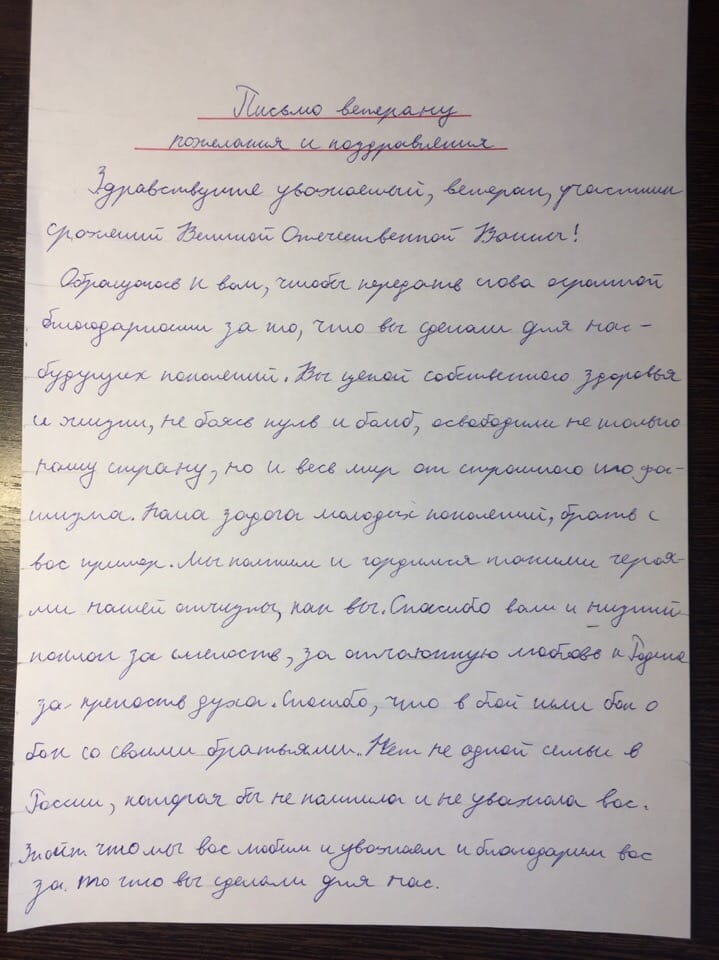 Письмо ветерану
пожелания и поздравления
Здравствуйте уважаемый, ветеран, участник
сражений Великой Отечественной Войны!
Обращаюсь к вам, чтобы передать слова огромной
благодарности за то, что вы сделали для нас-
будущих поколений. Вы ценой собственного здоровья
и жизни, не боясь пуль и бомб, освободили не только
нашу страну, но и весь мир от страшного ига фа-
шизма. Наша задача молодых поколений, брать с
вас пример. Мы помним и гордимся такими героя-
ми нашей отчизны, как вы. Спасибо вам и низкий
поклон за смелость, за отчаянную любовь к Родине
за крепость духа. Спасибо, что в бой шли бок о
бок со своими братьями. Нет не одной семьи в
России, которая бы не помнила и не уважала вас.
что мы вас любим и уважаем и благодарим вас
за то что вы сделали для нас.